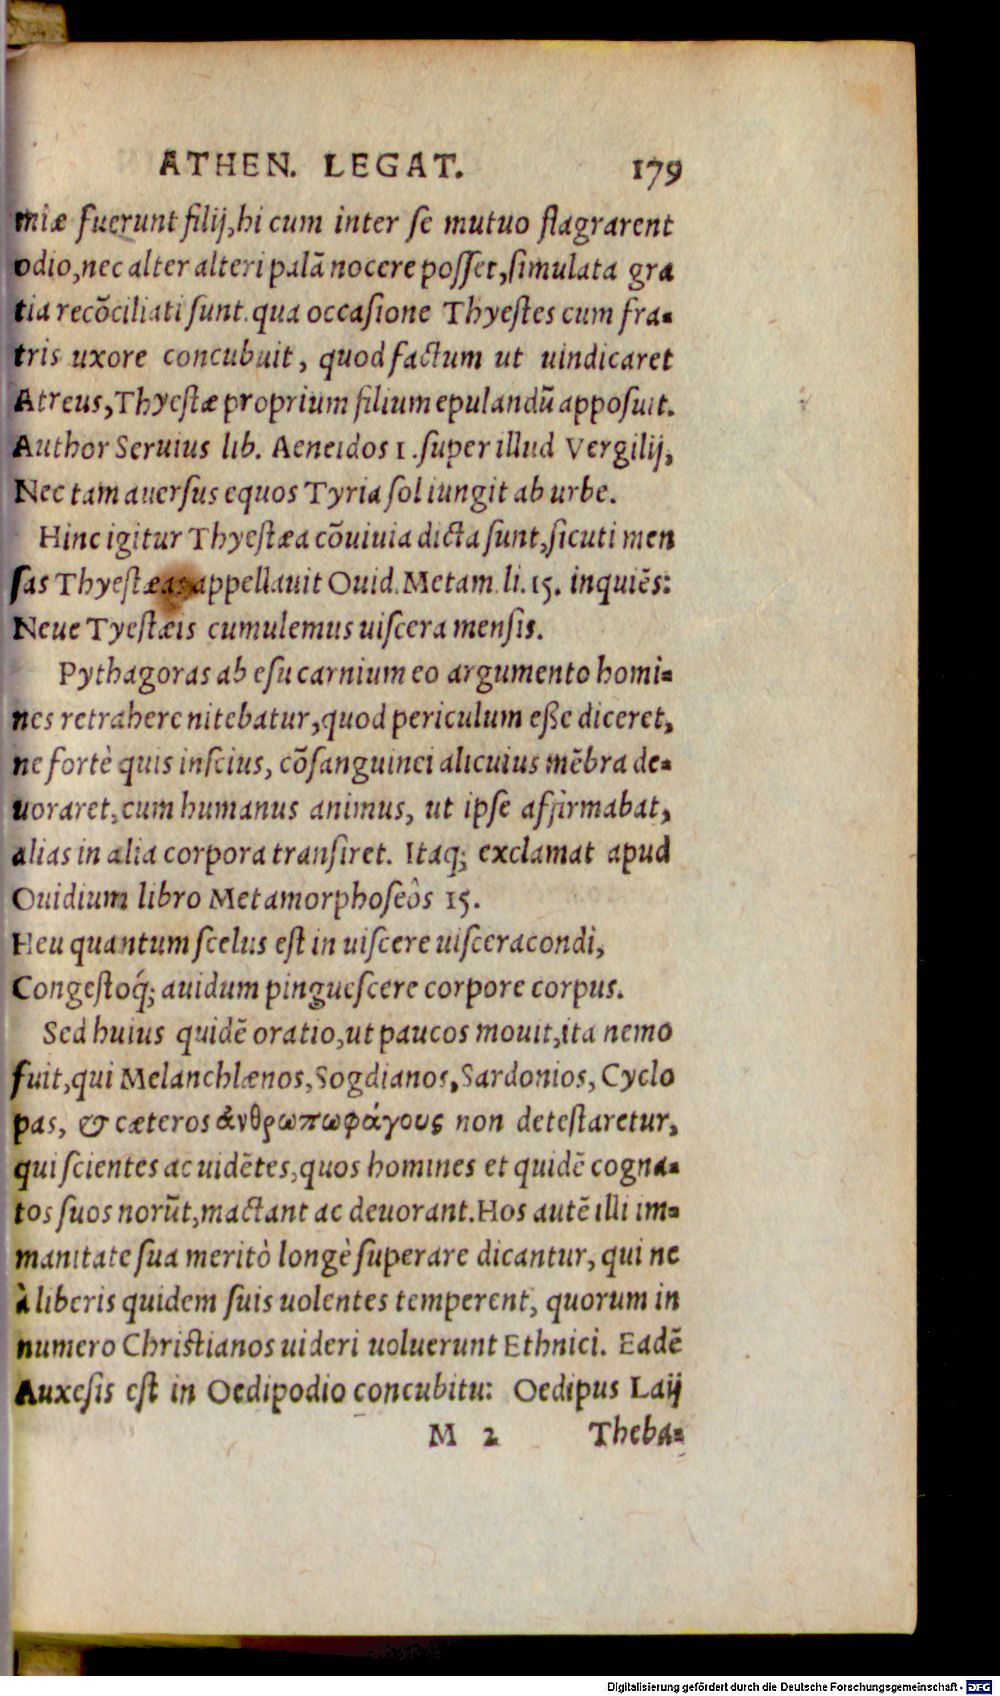 ATHEN. LEGAT. 179
miæ fuerunt filij, hi cum inter se mutuo flagrarent
odio, nec alter alteri palã nocere posset, simulata gra
tia recõciliati sunt. qua occasione Thyestes cum fra-
tris uxore concubuit, quod factum ut uindicaret
Atreus, Thyestæ proprium filium epulandũ apposuit.
Author Seruius lib. Aeneidos 1. super illud Vergilij,
Nec tam auersus equos Tyria sol iungit ab urbe.
Hinc igitur Thyestæa cõuiuia dicta sunt, sicuti men
sas Thyestæas appellauit Ouid. Metam. li. 15. inquiẽs:
Neue Tyestæis cumulemus uiscera mensis.
Pythagoras ab esu carnium eo argumento homi-
nes retrahere nitebatur, quod periculum eße diceret,
ne fortè quis inscius, cõsanguinei alicuius mẽbra de-
uoraret, cum humanus animus, ut ipse affirmabat,
alias in alia corpora transiret. Itaq; exclamat apud
Ouidium libro Metamorphoseôs 15.
Heu quantum scelus est in uiscere uiscera condi,
Congestoq́; auidum pinguescere corpore corpus.
Sed huius quidẽ oratio, ut paucos mouit, ita nemo
fuit, qui Melanchlænos, Sogdianos, Sardonios, Cyclo
pas, & cæteros ἀνθρωπωφάγους non detestaretur,
qui scientes ac uidẽtes, quos homines et quidẽ cogna-
tos suos norũt, mactant ac deuorant. Hos autẽ illi im-
manitate sua meritò longè superare dicantur, qui ne
à liberis quidem suis uolentes temperent, quorum in
numero Christianos uideri uoluerunt Ethnici. Eadẽ
Auxesis est in Oedipodio concubitu: Oedipus Laij
M 2 Theba-
Digitalisierung gefördert durch die Deutsche Forschungsgemeinschaft - DFG